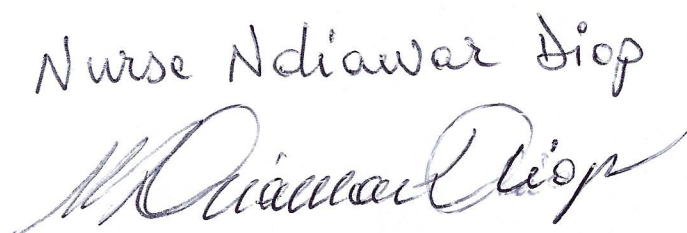 Nurse Ndiawar Diop
Ndiawar Diop